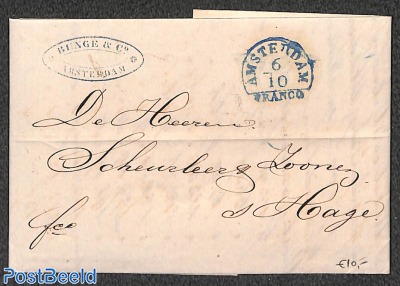 BUNGE & Co
AMSTERDAM
AMSTERDAM
6
10
FRANCO
De Heeren
Scheurleer & Zoonen
s Hage.
fco
€10,-
PostBeeld